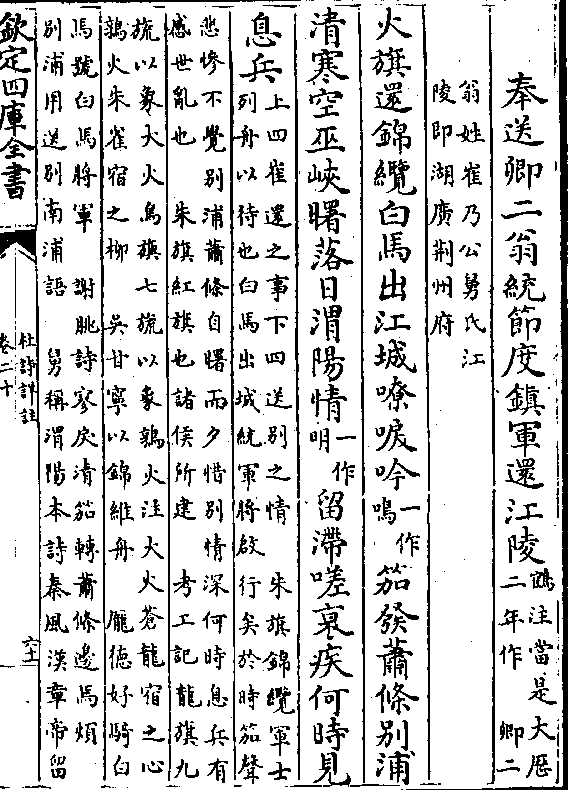 奉送卿二翁統節度鎮軍還江陵
鶴注當是大厯
二年作　卿二
翁姓崔乃公舅氏江
陵即湖廣荆州府
火旗還錦纜白馬出江城嘹唳吟一作鳴笳發蕭條别浦
清寒空巫峽曙落日渭陽情一作明留滯嗟衰疾何時見
息兵
上四崔還之事下四送别之情　朱旗錦纜軍士
列舟以待也白馬出城統軍將啟行矣於時笳聲
悲慘不覺别浦蕭條自曙而夕惜别情深何時息兵有
感世亂也　朱旗紅旗也諸侯所建　考工記龍旗九
旒以象大火鳥旗七旒以象鶉火注大火蒼龍宿之心
鶉火朱雀宿之柳　吳甘寧以錦維舟　龎德好騎白
馬號白馬將軍　謝朓詩寥戾清笳轉蕭條邊馬煩
别浦用送别南浦語　舅稱渭陽本詩秦風漢章帝留
欽定四庫全書
杜詩詳註
卷二十